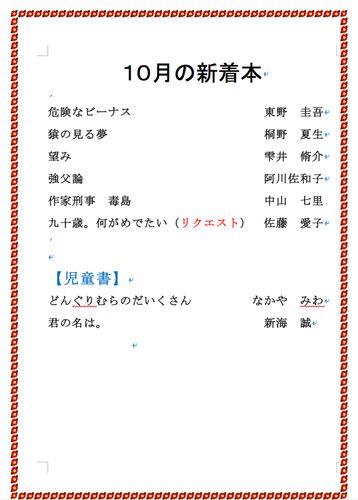 10月の新着本
危険なビーナス 東野 圭吾
猿の見る夢 桐野 夏生
望み 雫井 脩介
強父論 阿川佐和子
作家刑事 毒島 中山 七里
九十歳。何がめでたい（リクエスト） 佐藤 愛子
【児童書】
どんぐりむらのだいくさん なかや みわ
君の名は。 新海 誠